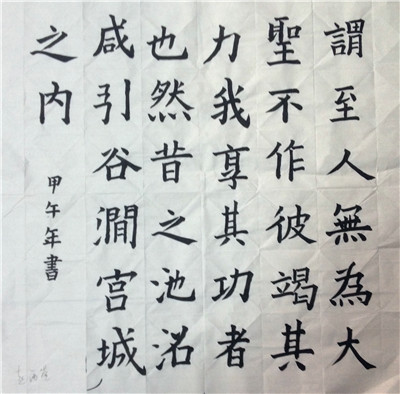 謂至人無為大
聖不作彼竭其
力我享其功者
也然昔之池沼
咸引谷澗宮城
之内
甲午年書